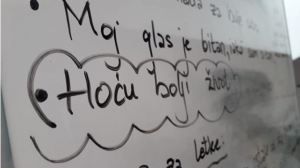 za
• Moj glas je bitan,
• Hoću bolji život
za letke.